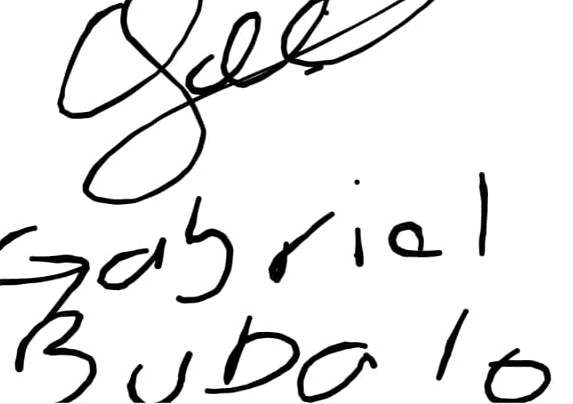 Gabriel
Bubalo